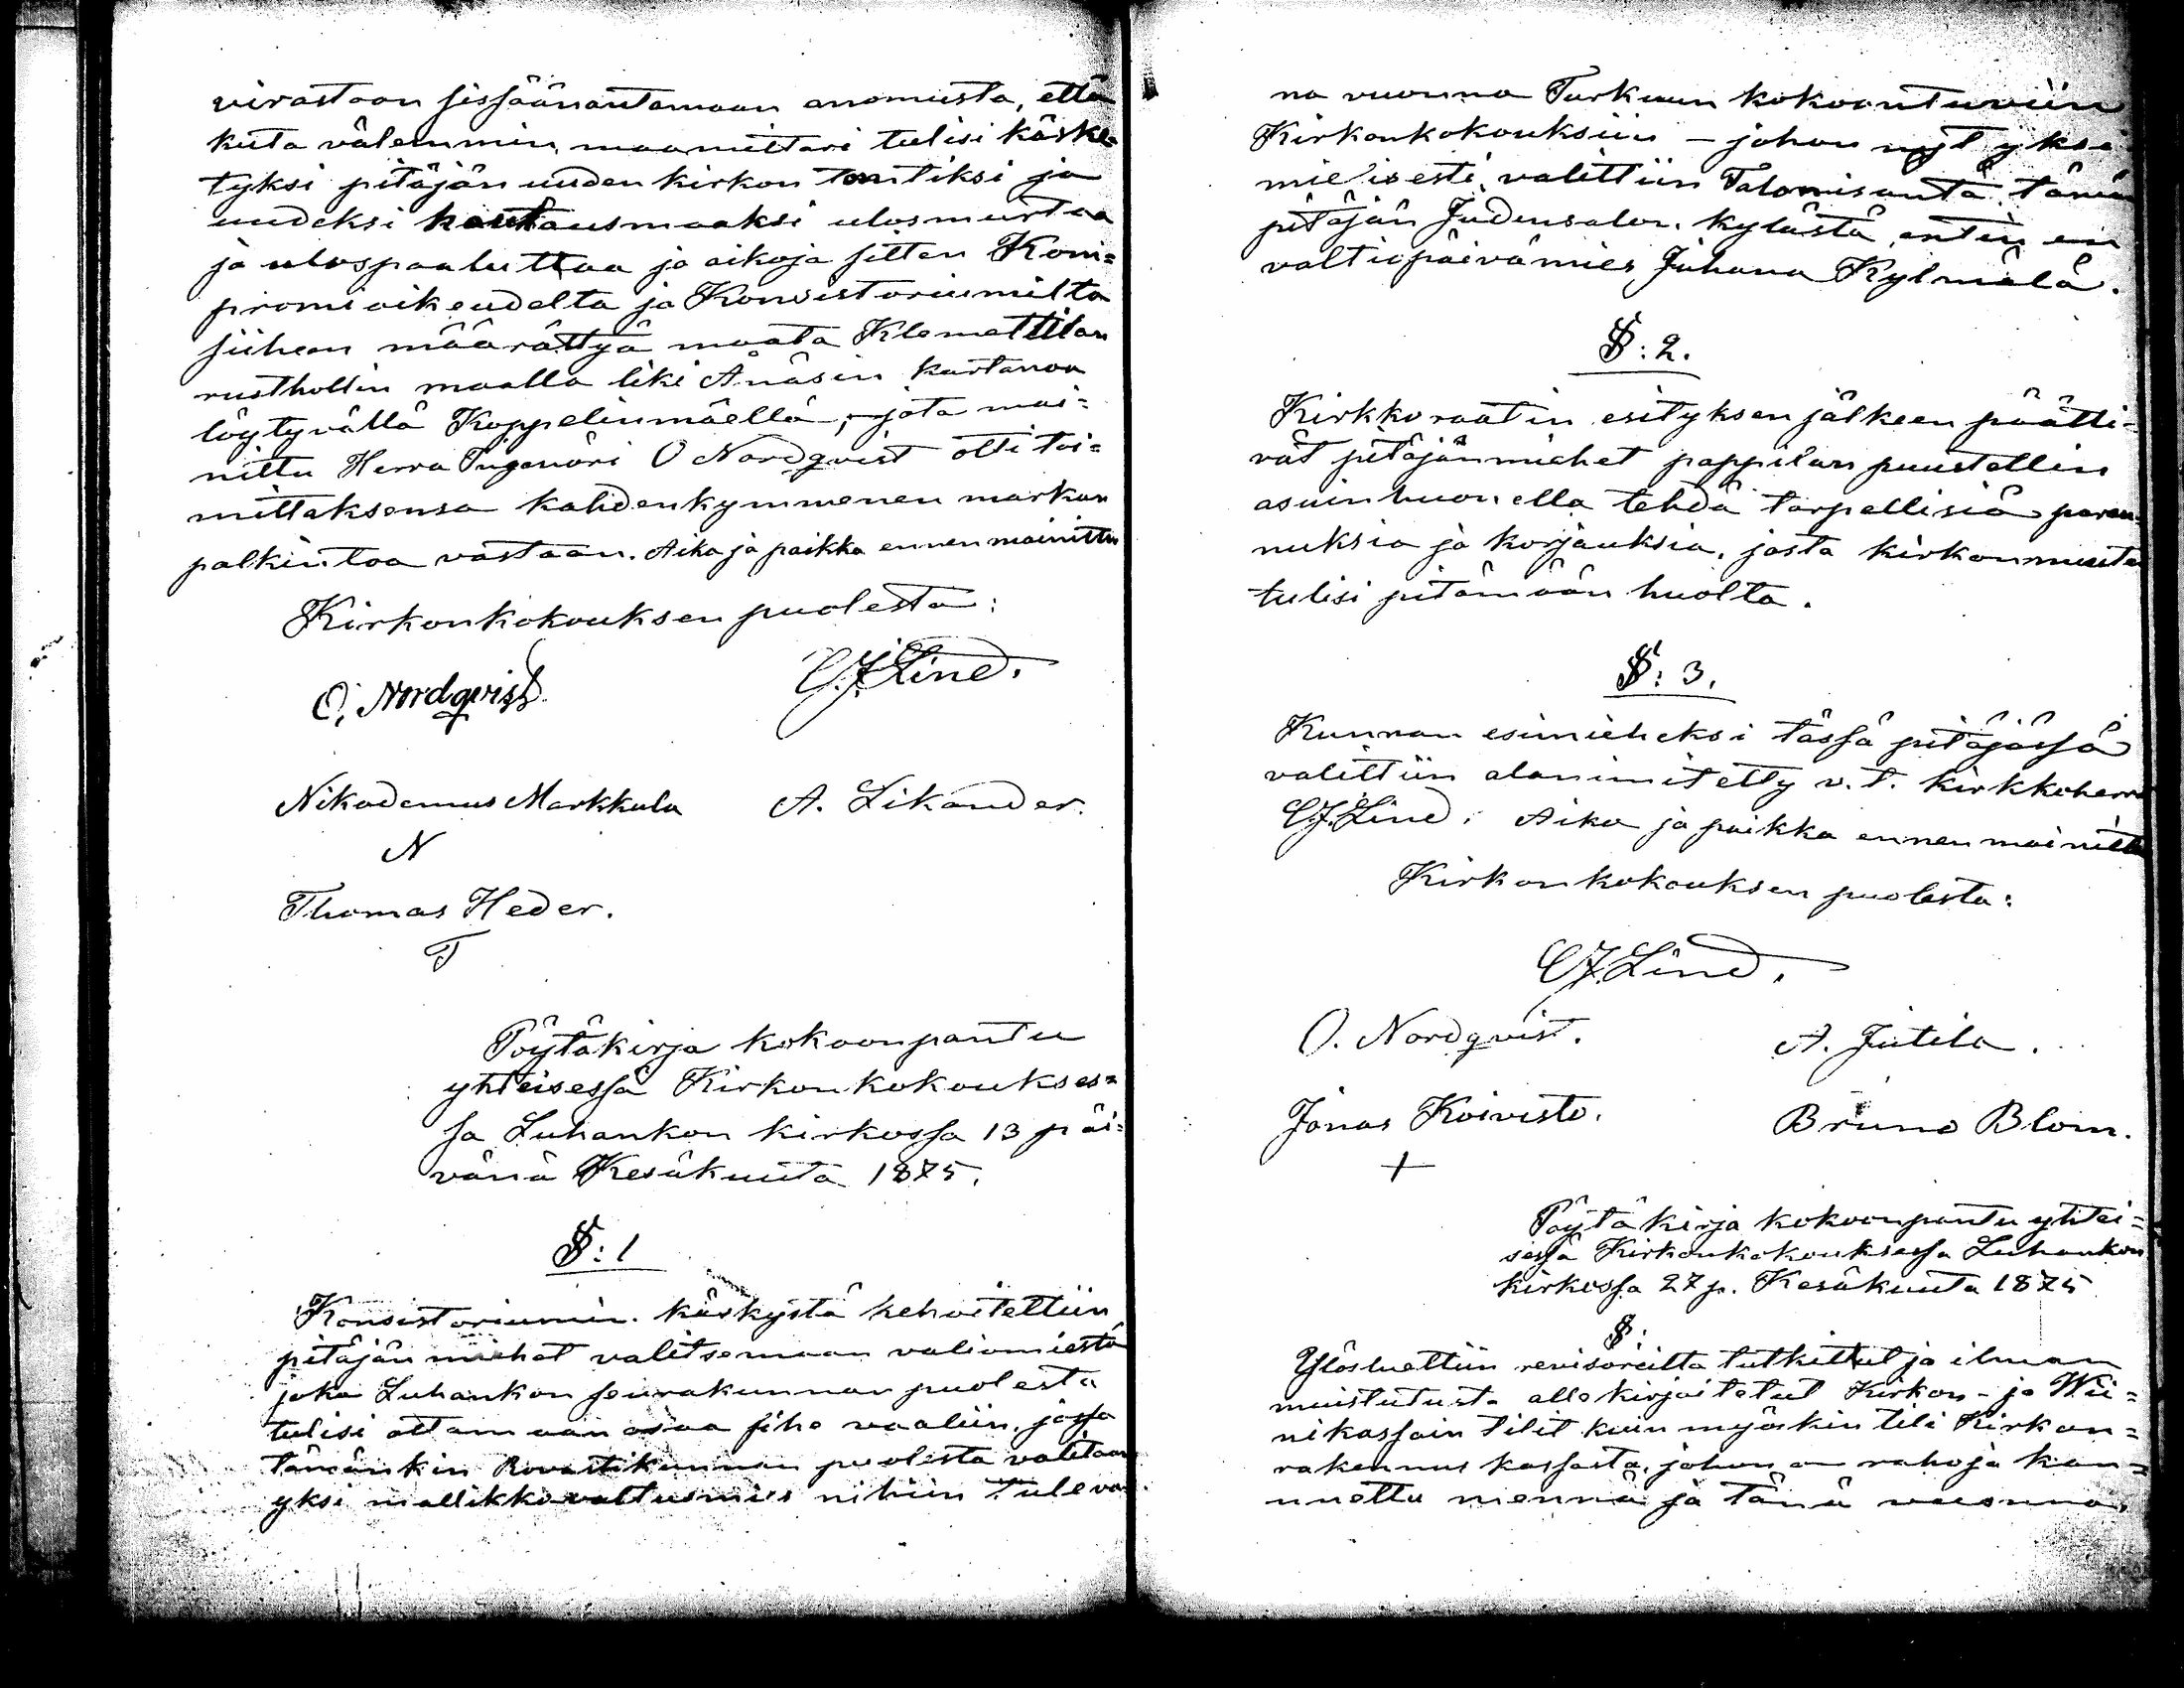 virastoon sissäänantamaan anomusta, että
kuta välemmin, maamittari tulisi käske=
tyksi pitäjän uuden kirkon tontiksi ja
uudeksi hautausmaaksi ulosmurtaa
ja ulospaaluttaa jo aikoja sitten Kom=
promi oikeudelta ja Konsistoriumilta
siihen määrättyä maata Klemettilän
rusthollin maalla liki Änäsin kartanoa
löytyvällä Koppelinmäellä, jota mai=
nittu Herra Ingenöri O Nordqvist otti toi=
mittaksensa kahdenkymmenen markan
palkintoa vastaan. Aika ja paikka ennen mainittu
Kirkonkokouksen puolesta:
C.J. Lind.
O. Nordqvist
Nikodemus Markkula A. Likander.
N
Thomas Heder.
T
Pöytäkirja kokoonpantu
yhteisessä Kirkonkokoukses=
sa Luhankon kirkossa 13 päi=
vänä Kesäkuuta 1875.
§: 1
Konsistoriumin käskystä kehoitettiin
pitäjän miehet valitsemaan valiomiestä
joka Luhankon seurakunnan puolesta
tulisi ottamaan osaa siihe vaaliin, jossa
tämänkin Rovastikunnan puolesta valitaan
yksi mallikkovaltuusmies nihiin tuleva
na vuonna Turkuun kokoontuviin
Kirkonkokouksiin – johon nyt yksi
mielisesti valittiin Talonisäntä tämän
pitäjän Judinsalon kylästä, entinen
valtiopäivämies Juhana Kylmälä.
§: 2.
Kirkkoraatin esityksen jälkeen päätti=
vät pitäjänmiehet pappilan puustellin
asuinhuonella tehdä tarpellisiä paran
nuksia ja korjauksia, josta kirkonmiesten
tulisi pitämään huolta.
§: 3.
Kunnan esimieheksi tässä pitäjässä
valittiin alanimitetty v.t. kirkkoherra
C.J. Lind. Aika ja paikka ennen mainittu
Kirkonkokouksen puolesta:
C J Lind.
O. Nordqvist. A. Jutila.
Jonas Koivisto. Bruno Blom.
+
Pöytäkirja kokoonpantu yhtei=
sessä Kirkonkokouksessa Luhankon
kirkossa 27 p. Kesäkuuta 1875
§:
Ylösluettiin revisoreilta tutkittut ja ilman
muistutusta allekirjoitetut Kirkon- ja Wii=
nikassain tilit kuin myöskin tili Kirkon=
rakennus kassasta, johon on rahoja kan=
nuettu mennä ja tänä vuonna,